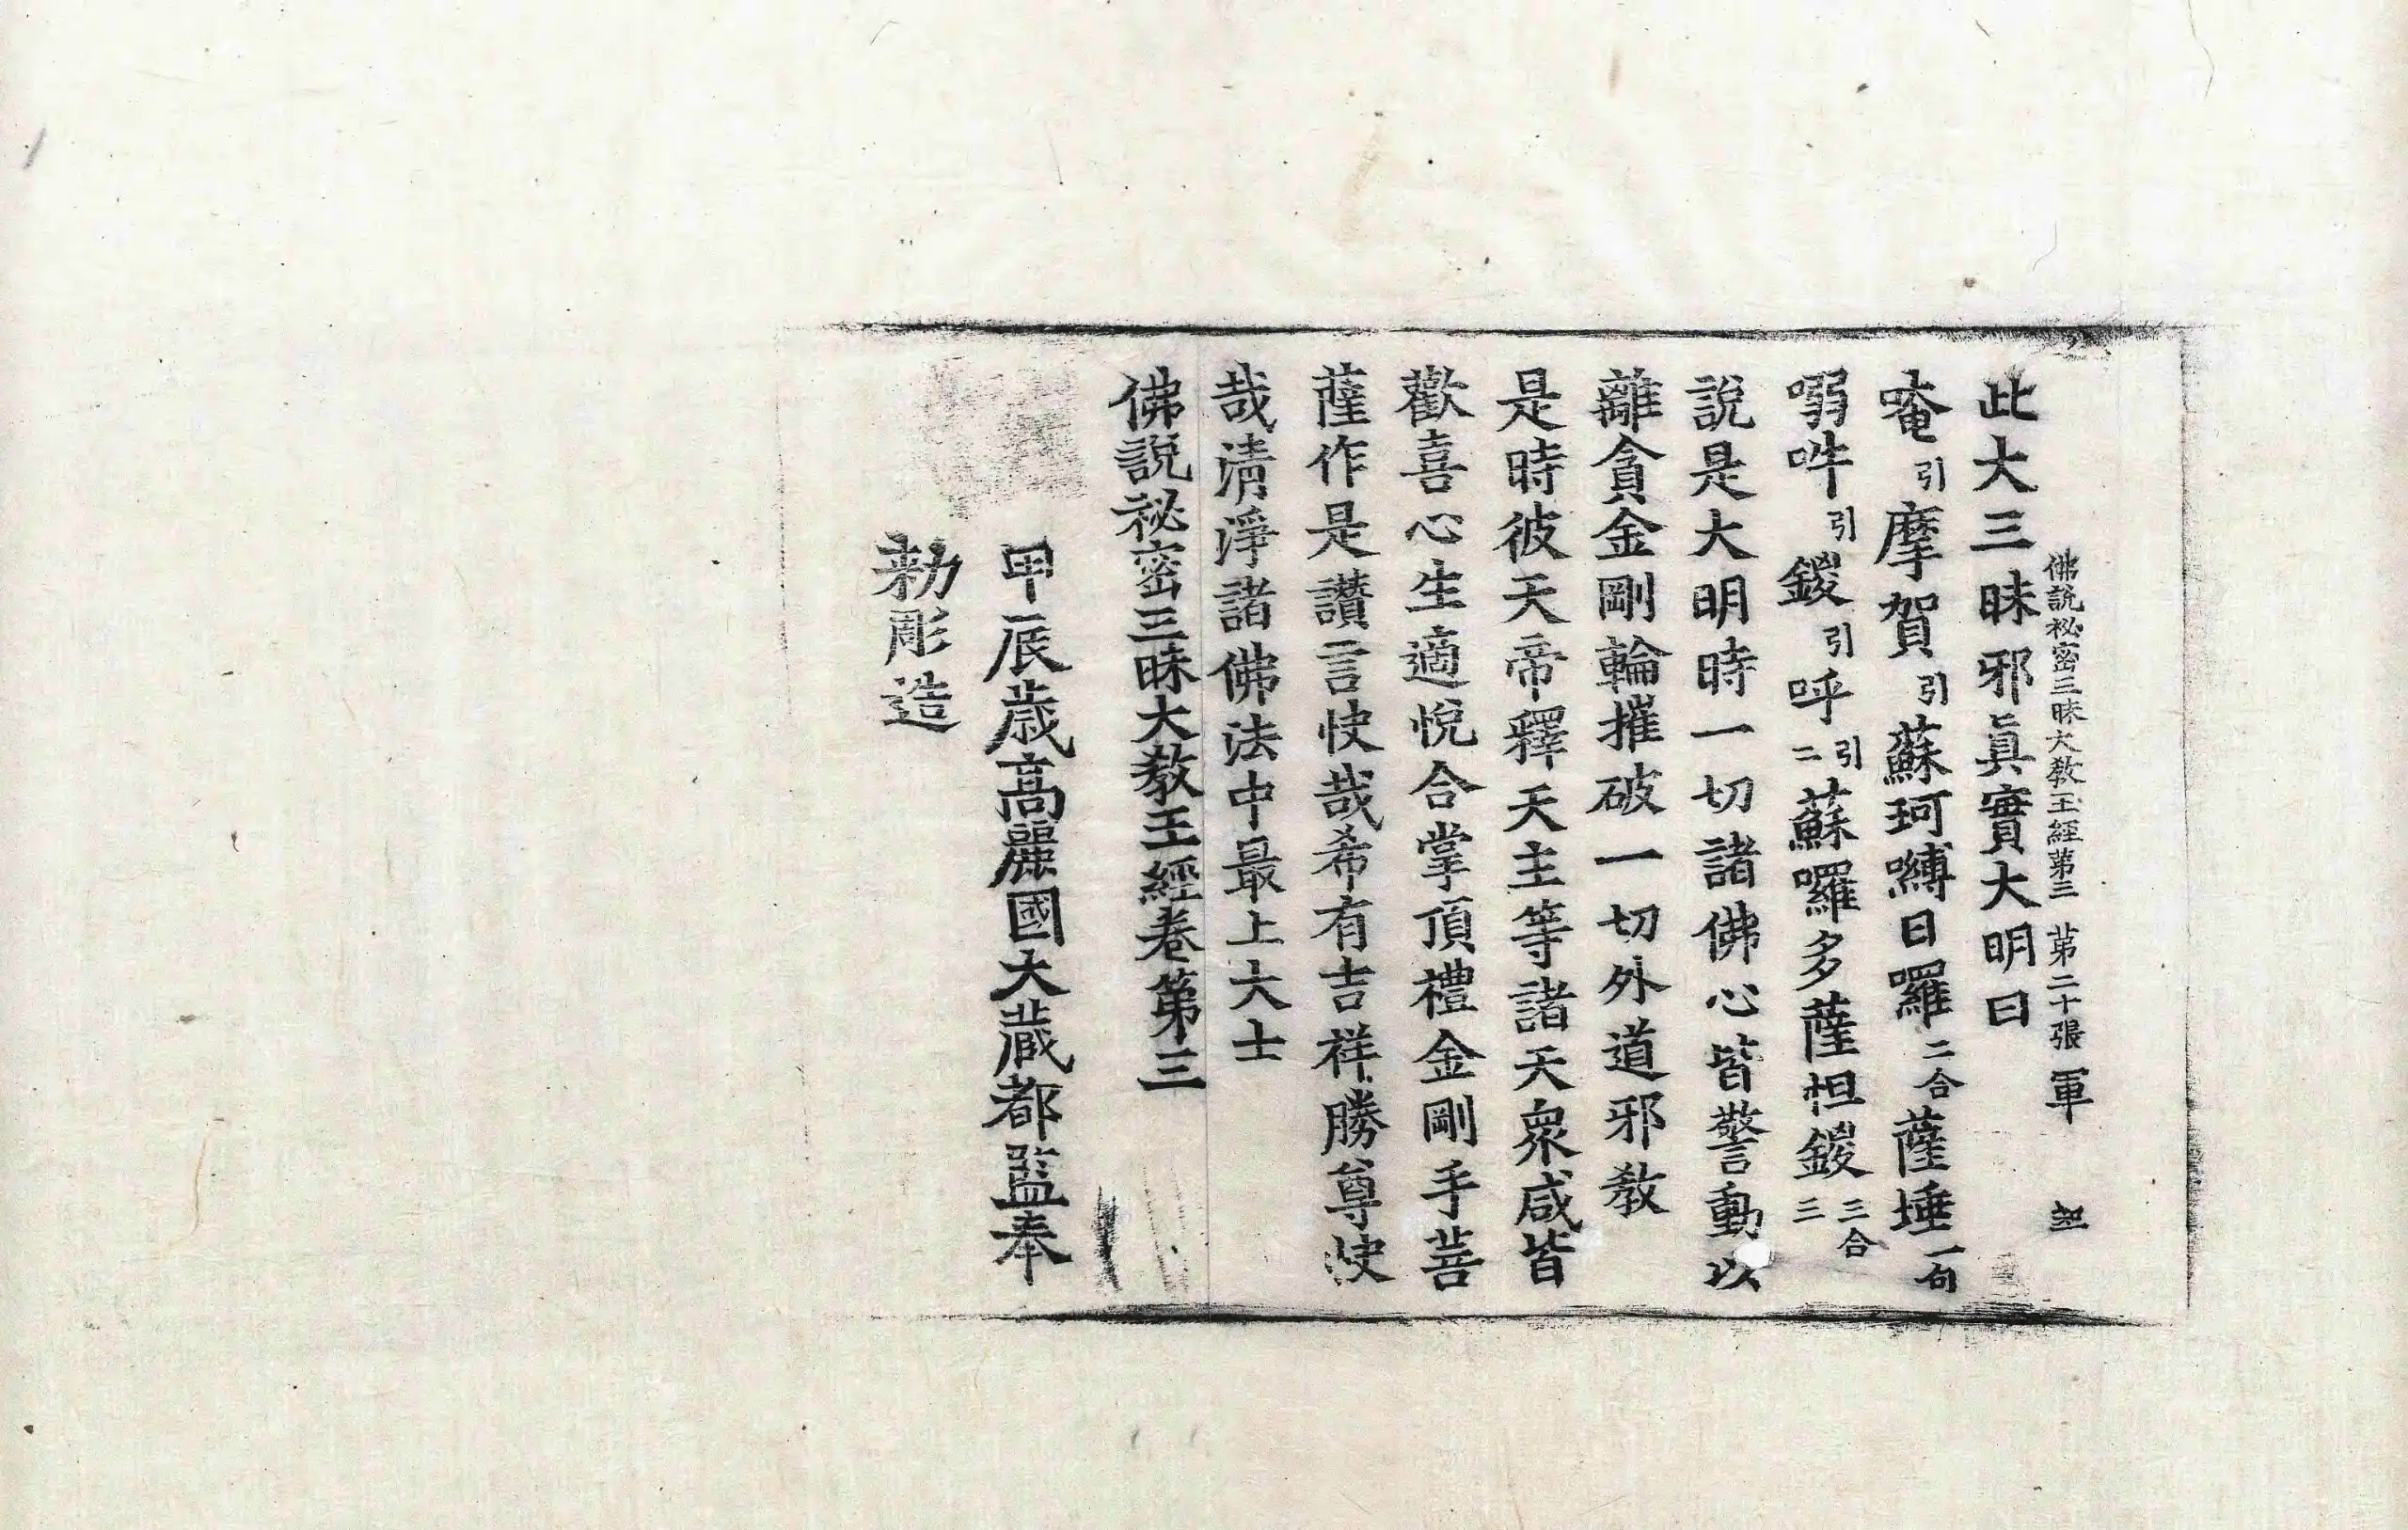 佛說祕密三昧大教王經第三 第二十張 軍
此大三昧邪眞實大明曰
唵引摩賀引蘇珂嚩日囉二合薩埵一句
嗍吽引鑁引呼引二蘇囉多薩怛鑁三合三
說是大明時一切諸佛心皆警動以
離貪金剛輪摧破一切外道邪教
是時彼天帝釋天主等諸天衆咸皆
歡喜心生適悅合掌頂禮金剛手菩
薩作是讚言快哉希有吉祥勝尊快
哉淸淨諸佛法中最上大士
佛說祕密三昧大教王經卷第三
甲辰歲高麗國大藏都監奉
勅彫造